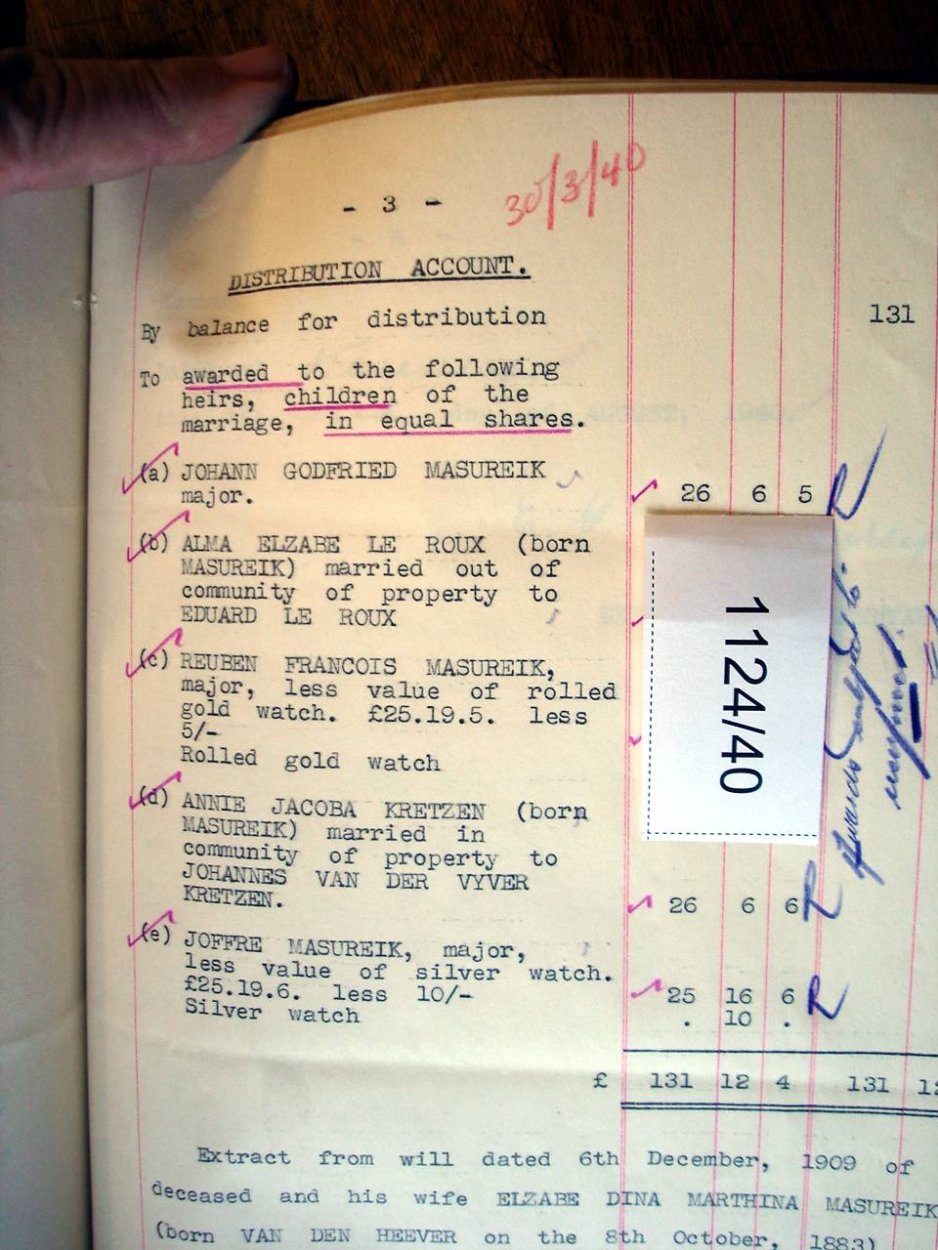 30/3/40
- 3 -
DISTRIBUTION ACCOUNT.
By balance for distribution 131
To awarded to the following
heirs, children of the
marriage, in equal shares.
(a) JOHANN GODFRIED MASUREIK
major. 26 6 5
(b) ALMA ELZABE LE ROUX (born
MASUREIK) married out of
community of property to
EDUARD LE ROUX
(c) REUBEN FRANCOIS MASUREIK,
major, less value of rolled
gold watch. £25.19.5. less
5/-
Rolled gold watch
1124/40
(d) ANNIE JACOBA KRETZEN (born
MASUREIK) married in
community of property to
JOHANNES VAN DER VYVER
KRETZEN. 26 6 6
(e) JOFFRE MASUREIK, major,
less value of silver watch.
£25.19.6. less 10/- 25 16 6
Silver watch . 10 .
£ 131 12 4 131 12
Extract from will dated 6th December, 1909 of
deceased and his wife ELZABE DINA MARTHINA MASUREIK
(born VAN DEN HEEVER on the 8th October, 1883)